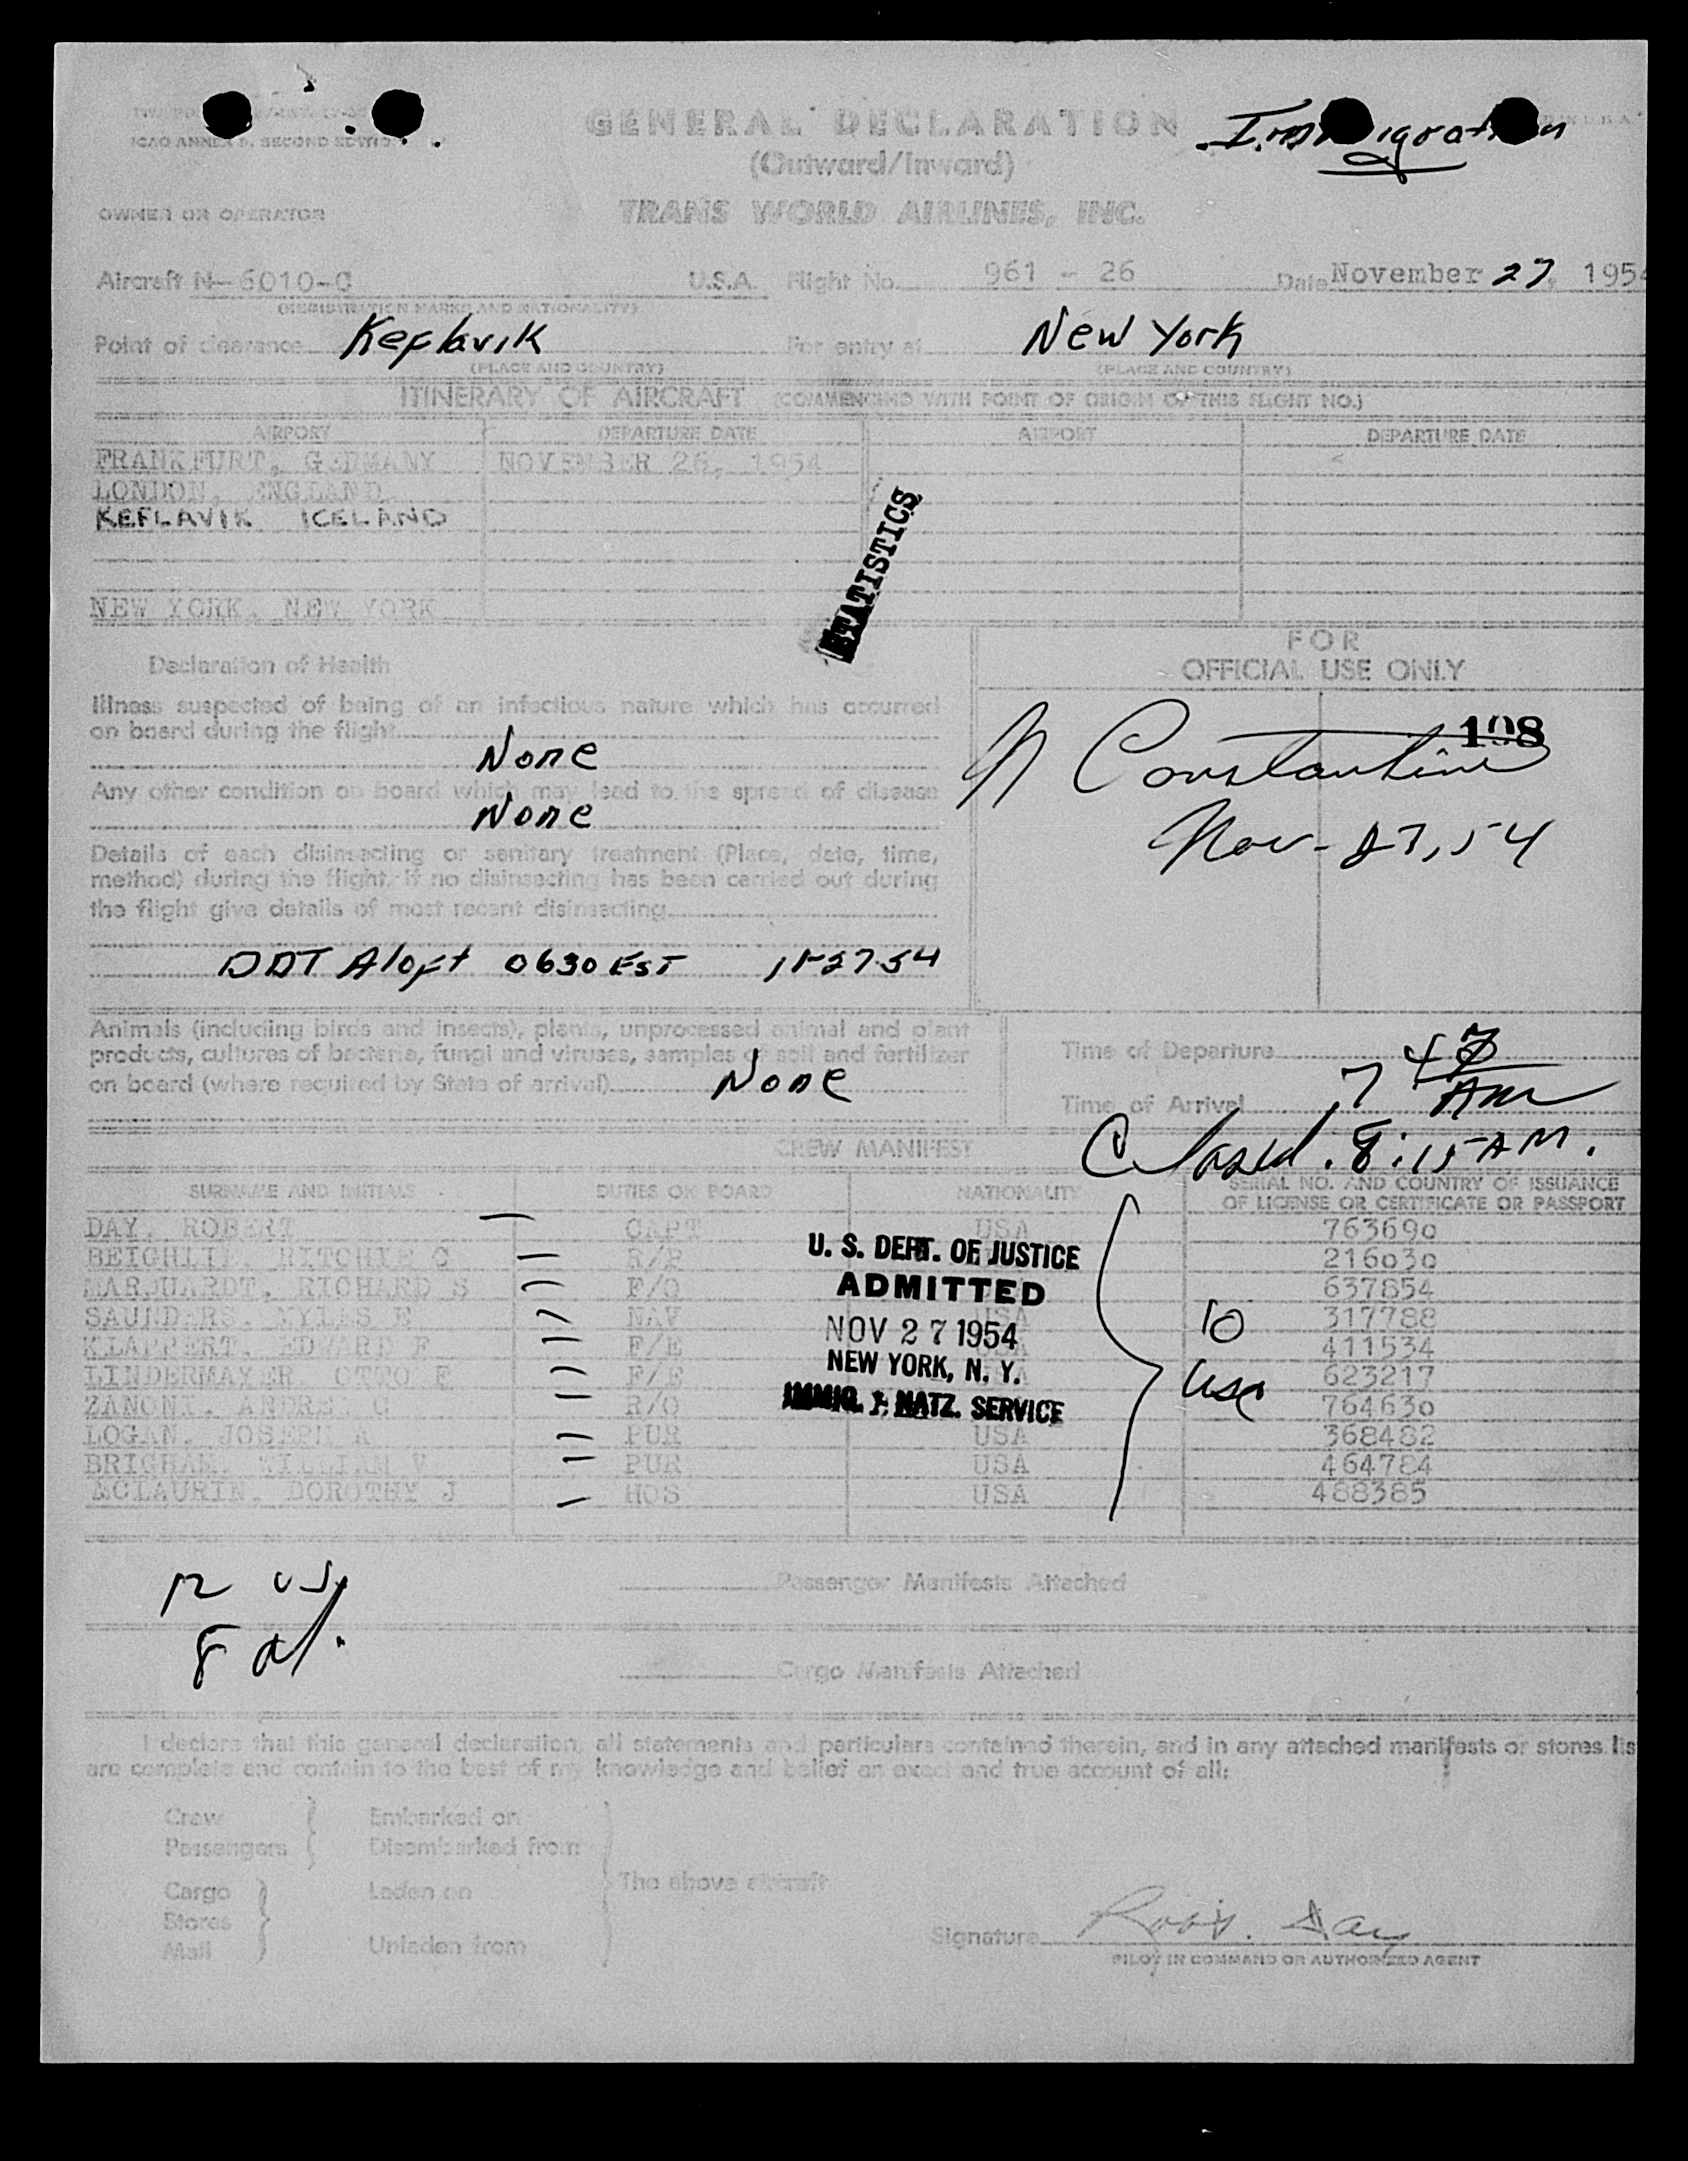 ICAO ANNEX 9, SECOND EDITION
GENERAL DECLARATION
Immigration
(Outward/Inward)
OWNER OR OPERATOR
TRANS WORLD AIRLINES, INC.
Aircraft N-6010-C U.S.A. Flight No. 961 - 26 Date November 27, 1954
(REGISTRATION MARKS AND NATIONALITY)
Point of clearance Keflavik For entry at New York
(PLACE AND COUNTRY) (PLACE AND COUNTRY)
ITINERARY OF AIRCRAFT (COMMENCING WITH POINT OF ORIGIN OF THIS FLIGHT NO.)
AIRPORT DEPARTURE DATE AIRPORT DEPARTURE DATE
FRANKFURT, GERMANY NOVEMBER 26, 1954
LONDON, ENGLAND
KEFLAVIK ICELAND
STATISTICS
NEW YORK, NEW YORK
Declaration of Health
Illness suspected of being of an infectious nature which has occurred
on board during the flight
None
Any other condition on board which may lead to the spread of disease
None
Details of each disinsecting or sanitary treatment (Place, date, time,
method) during the flight. If no disinsecting has been carried out during
the flight give details of most recent disinsecting
DDT Aloft 0630 EST 11-27-54
FOR
OFFICIAL USE ONLY
198
N Constantine
Nov-27,54
Animals (including birds and insects), plants, unprocessed animal and plant
products, cultures of bacteria, fungi and viruses, samples of soil and fertilizer
on board (where required by State of arrival) None
Time of Departure
Time of Arrival 7 47 AM
Closed. 8:15 AM.
CREW MANIFEST
SURNAME AND INITIALS DUTIES ON BOARD NATIONALITY SERIAL NO. AND COUNTRY OF ISSUANCE
OF LICENSE OR CERTIFICATE OR PASSPORT
DAY, ROBERT CAPT USA 763690
BEIGHLIE, RITCHIE C 216030
MARJUARDT, RICHARD S F/O 637854
SAUNDERS, MYLES E NAV USA 317788
KLAPPERT, EDWARD F F/E USA 411534
LINDERMAYER OTTO E F/E USA 623217
ZANONI, ANDREW C R/O 764630
LOGAN, JOSEPH A PUR USA 368482
BRIGHAM, WILLIAM V PUR USA 464784
MCLAURIN, DOROTHY J HOS USA 488385
U. S. DEPT. OF JUSTICE
ADMITTED
NOV 27 1954
NEW YORK, N. Y.
IMMIG. & NATZ. SERVICE
10
USC
12 US
8 al.
Passenger Manifests Attached
Cargo Manifests Attached
I declare that this general declaration, all statements and particulars contained therein, and in any attached manifests or stores lis
are complete and contain to the best of my knowledge and belief an exact and true account of all:
Crew Embarked on
Passengers Disembarked from
The above aircraft
Cargo Laden on
Stores
Mail Unladen from
Signature Robt. Day
PILOT IN COMMAND OR AUTHORIZED AGENT